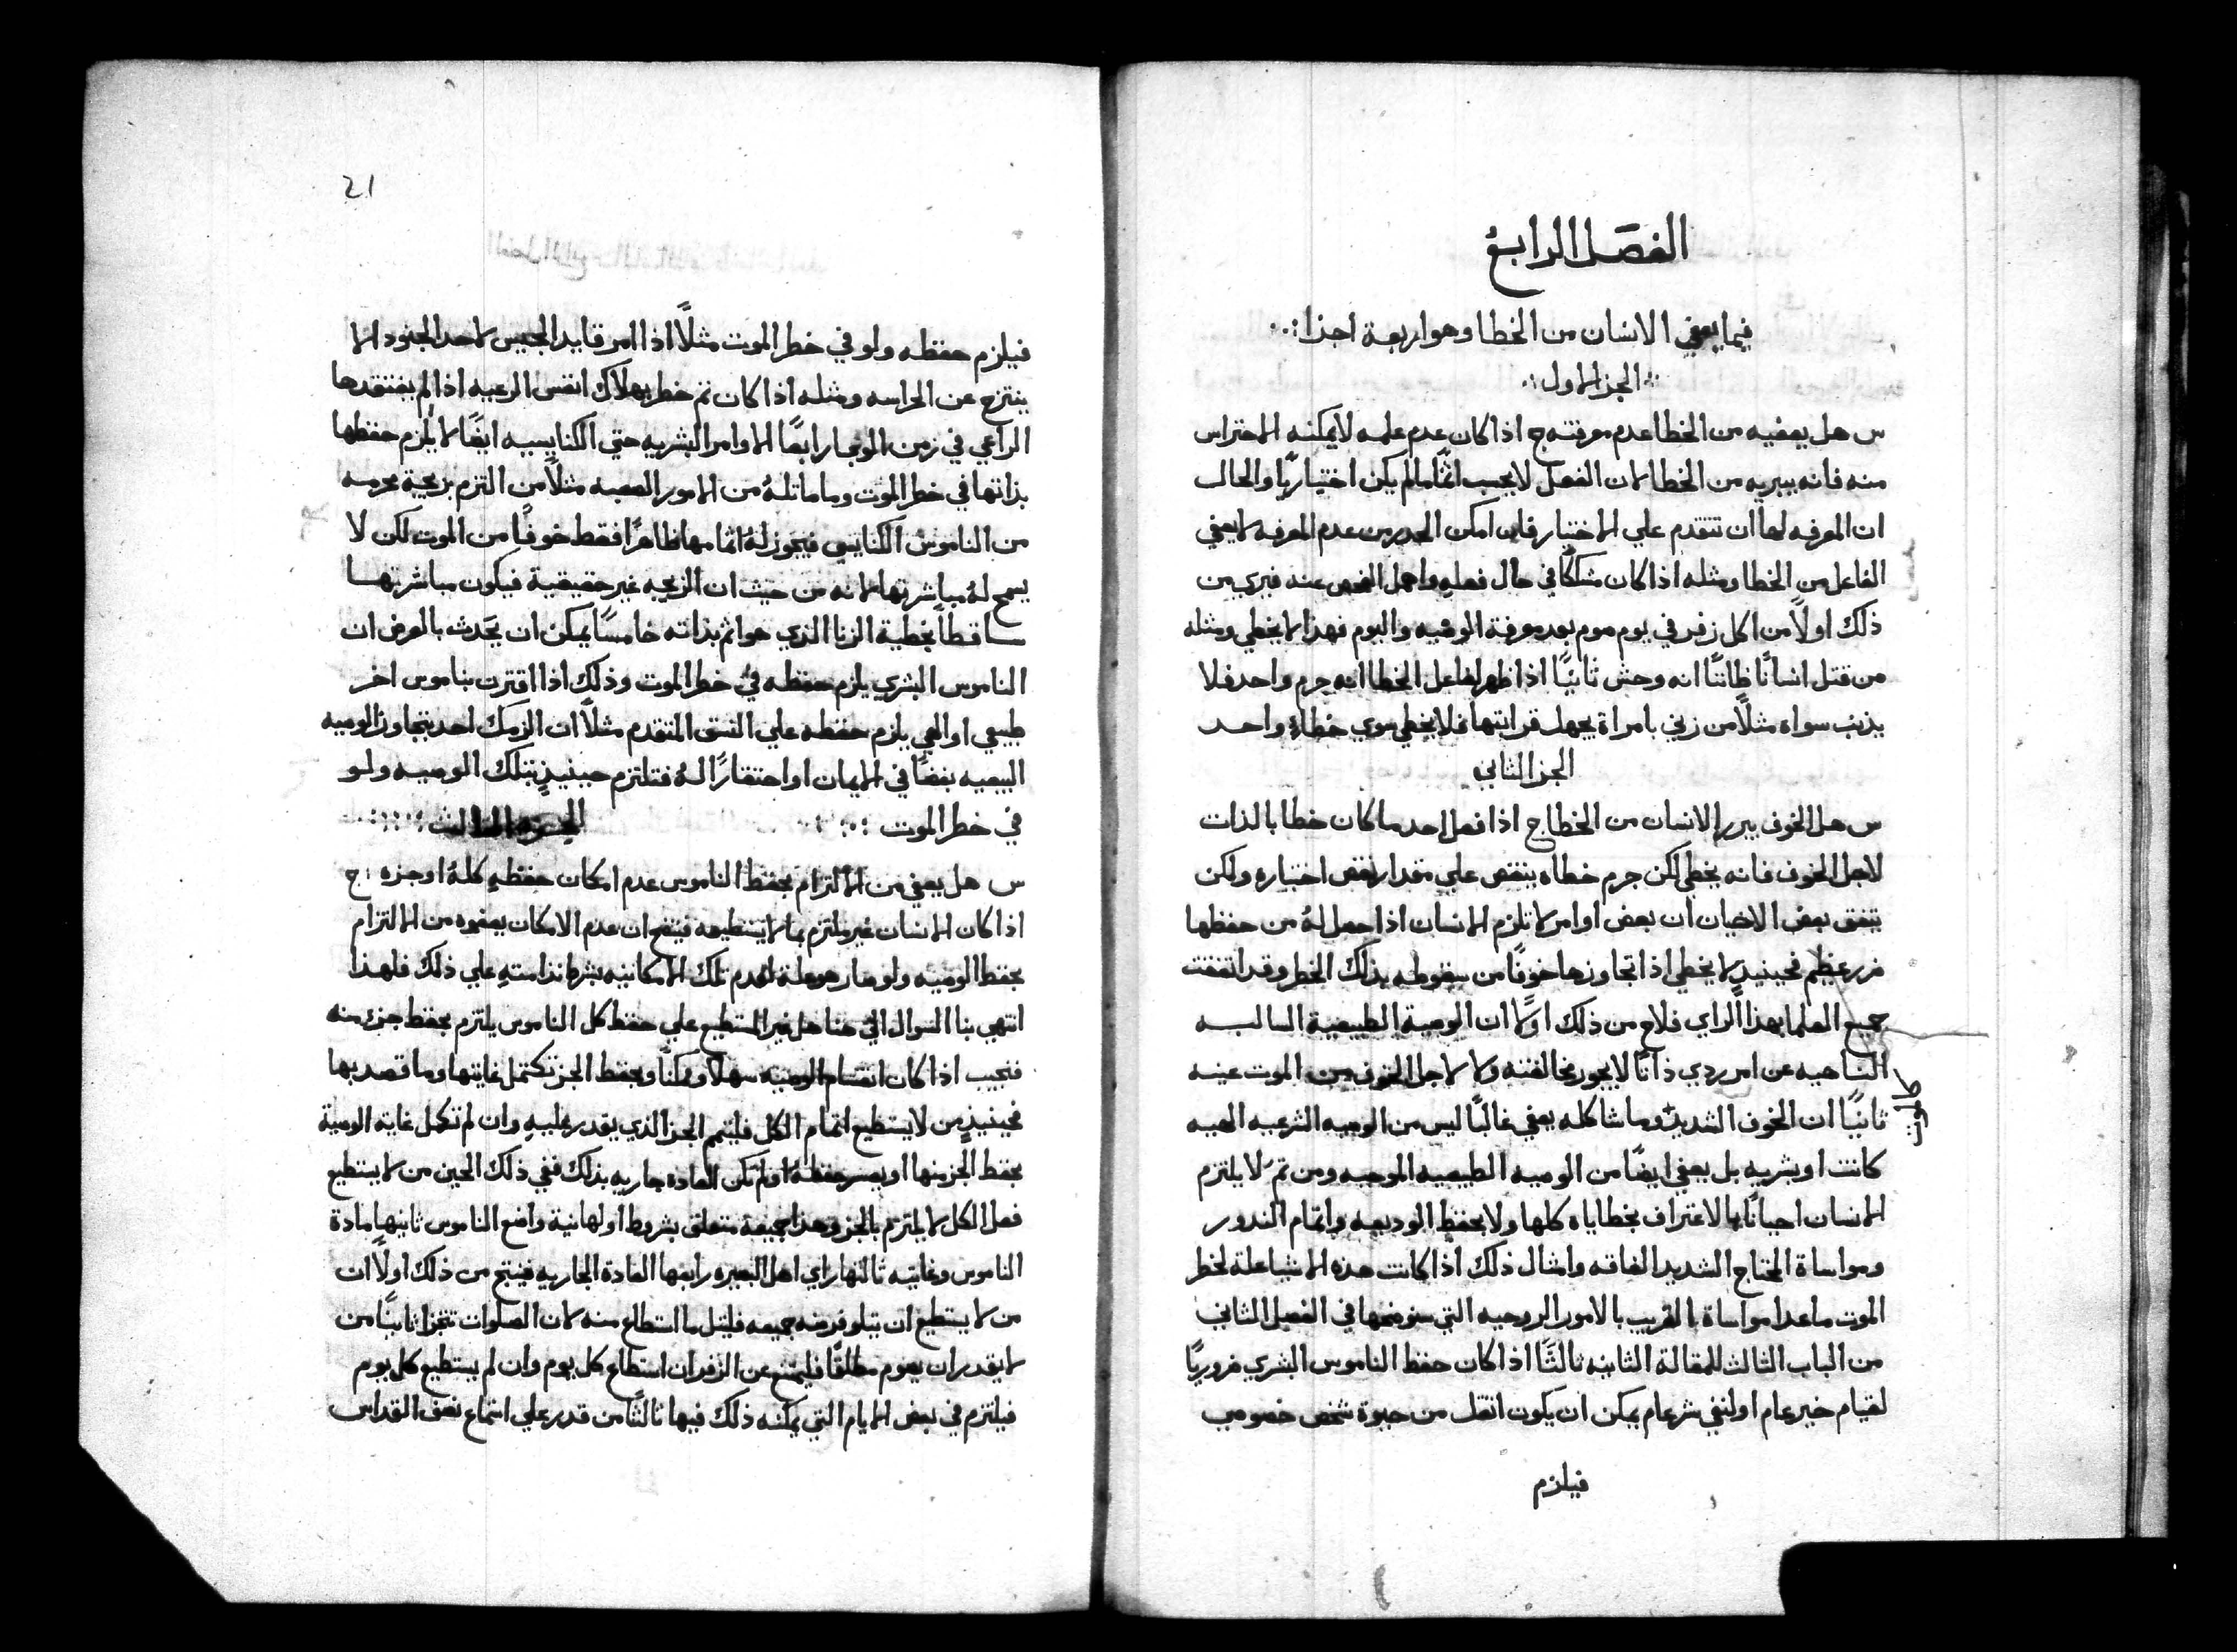 الفصل الرابع
فيما يعفي الانسان من الخطا وهو اربعة اجزا
الجز الاول
س هل يعفيه من الخطا عدم معرفته ج اذا كان عدم علمه لا يمكنه الاحتراس
منه فانه يبريه من الخطا لان الفعل لا يحسب اثمًا ما لم يكن اختياريًا والحال
ان المعرفه لها ان تتقدم علي الاختيار فان امكن الحدر من عدم المعرفه لا يعفي
الفاعل من الخطا ومثله اذا كان مشككًا في حال فعله واهمل الفحص عنه فيري من
ذلك اولاً من اكل زفر في يوم صوم بعد معرفة الوصيه واليوم فهذا لا يخطي ومثله
من قتل انسانًا ظانًا انه وحش ثانيًا اذا ظهر لفاعل الخطا انه جرم واحد فلا
يذنب سواه مثلاً من زني بامراة يجهل قرابتها فلا يخطي سوي خطاءً واحد
الجز الثاني
س هل الخوف يبرر الانسان من الخطا ج اذا فعل احد ما كان خطا بالذات
لاجل الخوف فانه يخطي لكن جرم خطاه ينقص علي مقدار نقص اختياره ولكن
يتفق بعض الاحيان ان بعض اوامر لا تلزم الانسان اذا حصل له من حفظها
ضرر عظيم فحينيدٍ لا يخطي اذا تجاوزها خوفًا من سقوطه بذلك الخطر وقد اتفقت
جميع العلما بهذا الراي فلاح من ذلك اولاً ان الوصية الطبيعية السالبه
الناهيه عن امر ردي ذاتًا لا يجوز مخالفتها ولا لاجل الخوف من الموت عينه
ثانيًا ان الخوف الشديد وما شاكله يعفي غالبًا ليس من الوصيه الشرعيه الهيه
كالموت
كانت او بشريه بل يعفي ايضًا من الوصيه الطبيعيه الموجبه ومن تم لا يلتزم
الانسان احيانًا بالاعتراف بخطاياه كلها ولا بحفظ الوديعه واتمام الندور
ومواساة المحتاج الشديد الفاقه وامثال ذلك اذا كانت هذه الاشيا علة لخطر
الموت ماعدا مواساة القريب بالامور الروحيه التي سنوضحها في الفصل الثاني
من الباب الثالث للمقالة الثانيه ثالثًا اذا كان حفظ الناموس البشري ضروريًا
لقيام خير عام او لنفي شر عام يمكن ان يكون اثقل من حيوة شخص خصوصي
فيلزم
21
فيلزم حفظه ولو في خطر الموت مثلاً اذا امر قايد الجيس لاحد الجنود الا
ينتزح عن الحراسه ومثله اذا كان تم خطر بهلاك انفس الرعيه اذا لم يفتقدها
الراعي في زمن الموتجار رابعًا الاوامر البشريه حتي الكنايسيه ايضًا لا يلزم حفظها
بذاتها في خطر الموت وما ماثله من الامور الصعبه مثلاً من التزم بزيجة محرمه
من الناموس الكنايسي فيجوز له اتمامها ظاهرًا فقط خوفًا من الموت لكن لا
يسمح له مباشرتها لانه من حيث ان الزيجه غير حقيقية فيكون مباشرتها
ساقطًا بخطية الزنا الذي هو اثم بذاته خامسًا يمكن ان يحدث بالعرض ان
الناموس البشري يلزم حفظه في خطر الموت وذلك اذا اقترن بناموس اخر
طبيعي او الهي يلزم حفظه علي النسق المتقدم مثلاً ان الزمك احد بتجاوز الوصيه
البيعيه بغضًا في الايمان او احتقارًا له فتلتزم حينيذٍ بتلك الوصيه ولو
في خطر الموت
الجز الثالث
س هل يعفي من الالتزام بحفظ الناموس عدم امكان حفظه كله او جزه ج
اذا كان الانسان غير ملتزم بما لا يستطيعه فينتج ان عدم الامكان يعفوه من الالتزام
بحفظ الوصيه ولو صار هو علة لعدم تلك الامكانيه بشرط ندامته علي ذلك فلهذا
انتهي بنا السوال الي هنا هل غير المستطيع علي حفظ كل الناموس يلتزم بحفظ جزء منه
فنجيب اذا كان انقسام الوصيه سهلاً وممكنًا وبحفظ الجز تكتمل غايتها وما قصد بها
فحينيذٍ من لا يستطيع اتمام الكل فليتمم الجز الذي يقدر عليه وان لم تكمل غاية الوصية
بحفظ الجز منها او يعسر حفظه او لم تكن العادة جاريه بذلك ففي ذلك الحين من لا يستطيع
فعل الكل لا يلتزم بالجز وهذا جميعه متعلق بشروط اولها نية واضع الناموس ثانيها مادة
الناموس وغايته ثالثها راي اهل البصيره رابعها العادة الجاريه فينتج من ذلك اولاً ان
من لا يستطيع ان يتلو فرضه جميعه فليتل ما استطاع منه لان الصلوات تتجزا ثانيًا من
لا يقدر ان يصوم مطلقًا فليمتنع عن الزفر ان استطاع كل يوم وان لم يستطيع كل يوم
فيلتزم في بعض الايام التي يمكنه ذلك فيها ثالثًا من قدر علي استماع نصف القداس